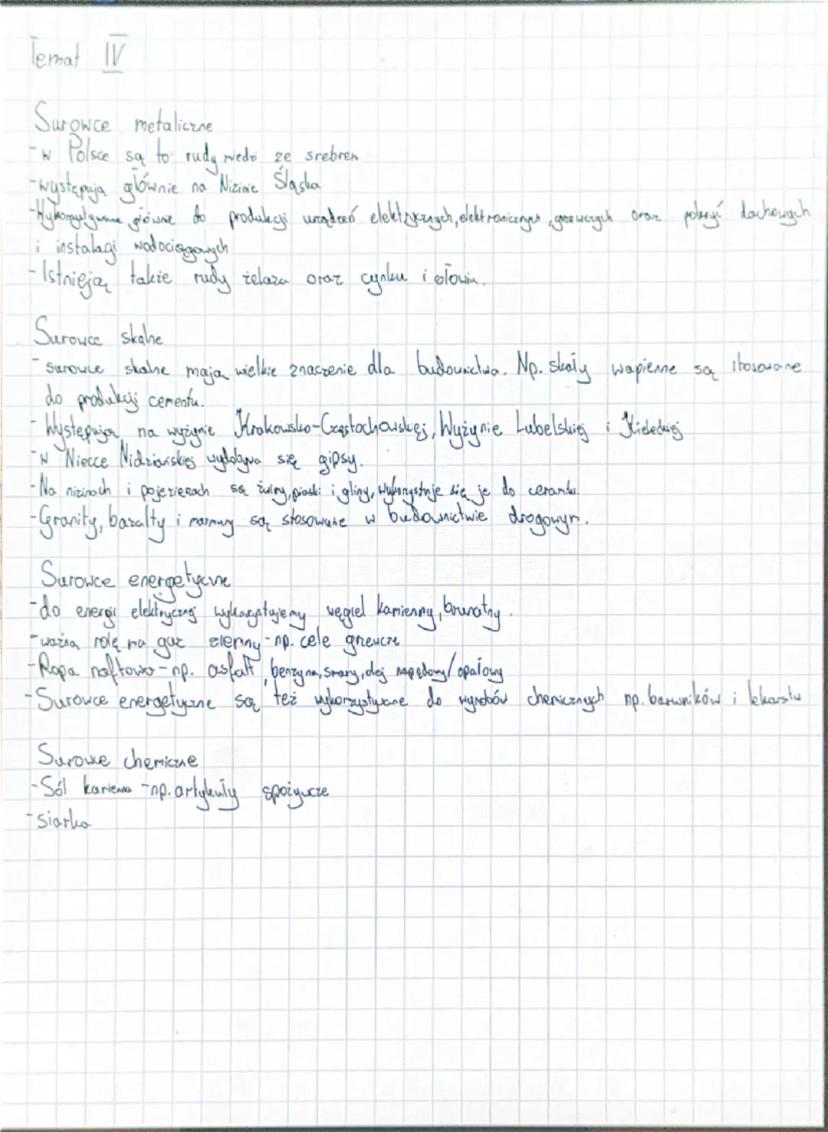 Temat IV
Surowce metaliczne
- w Polsce są to rudy miedzi ze srebrem
- występują głównie na Nizinie Śląska
- Wykorzystywane głównie do produkcji urządzeń elektrycznych, elektronicznych, grzewczych oraz pokryć dachowych
i instalacji wodociągowych
- Istnieją także rudy żelaza oraz cynku i ołowiu.
Surowce skalne
- surowce skalne mają wielkie znaczenie dla budownictwa. Np. skały wapienne są stosowane
do produkcji cementu.
- Występują na wyżynie Krakowsko-Częstochowskiej, Wyżynie Lubelskiej i Kieleckiej
- w Niecce Nidziańskiej wydobywa się gipsy.
- Na nizinach i pojezierzach są żwiry, piaski i gliny, wykorzystuje się je do ceramiki.
- Granity, bazalty i marmury są stosowane w budownictwie drogowym.
Surowce energetyczne
- do energii elektrycznej wykorzystujemy węgiel kamienny, brunatny.
- ważną rolę ma gaz ziemny - np. cele grzewcze
- Ropa naftowa - np. asfalt, benzyna, smary, olej napędowy/opałowy
- Surowce energetyczne są też wykorzystywane do wyrobów chemicznych np. barwników i lekarstw
Surowce chemiczne
- Sól kamienna - np. artykuły spożywcze
- siarka